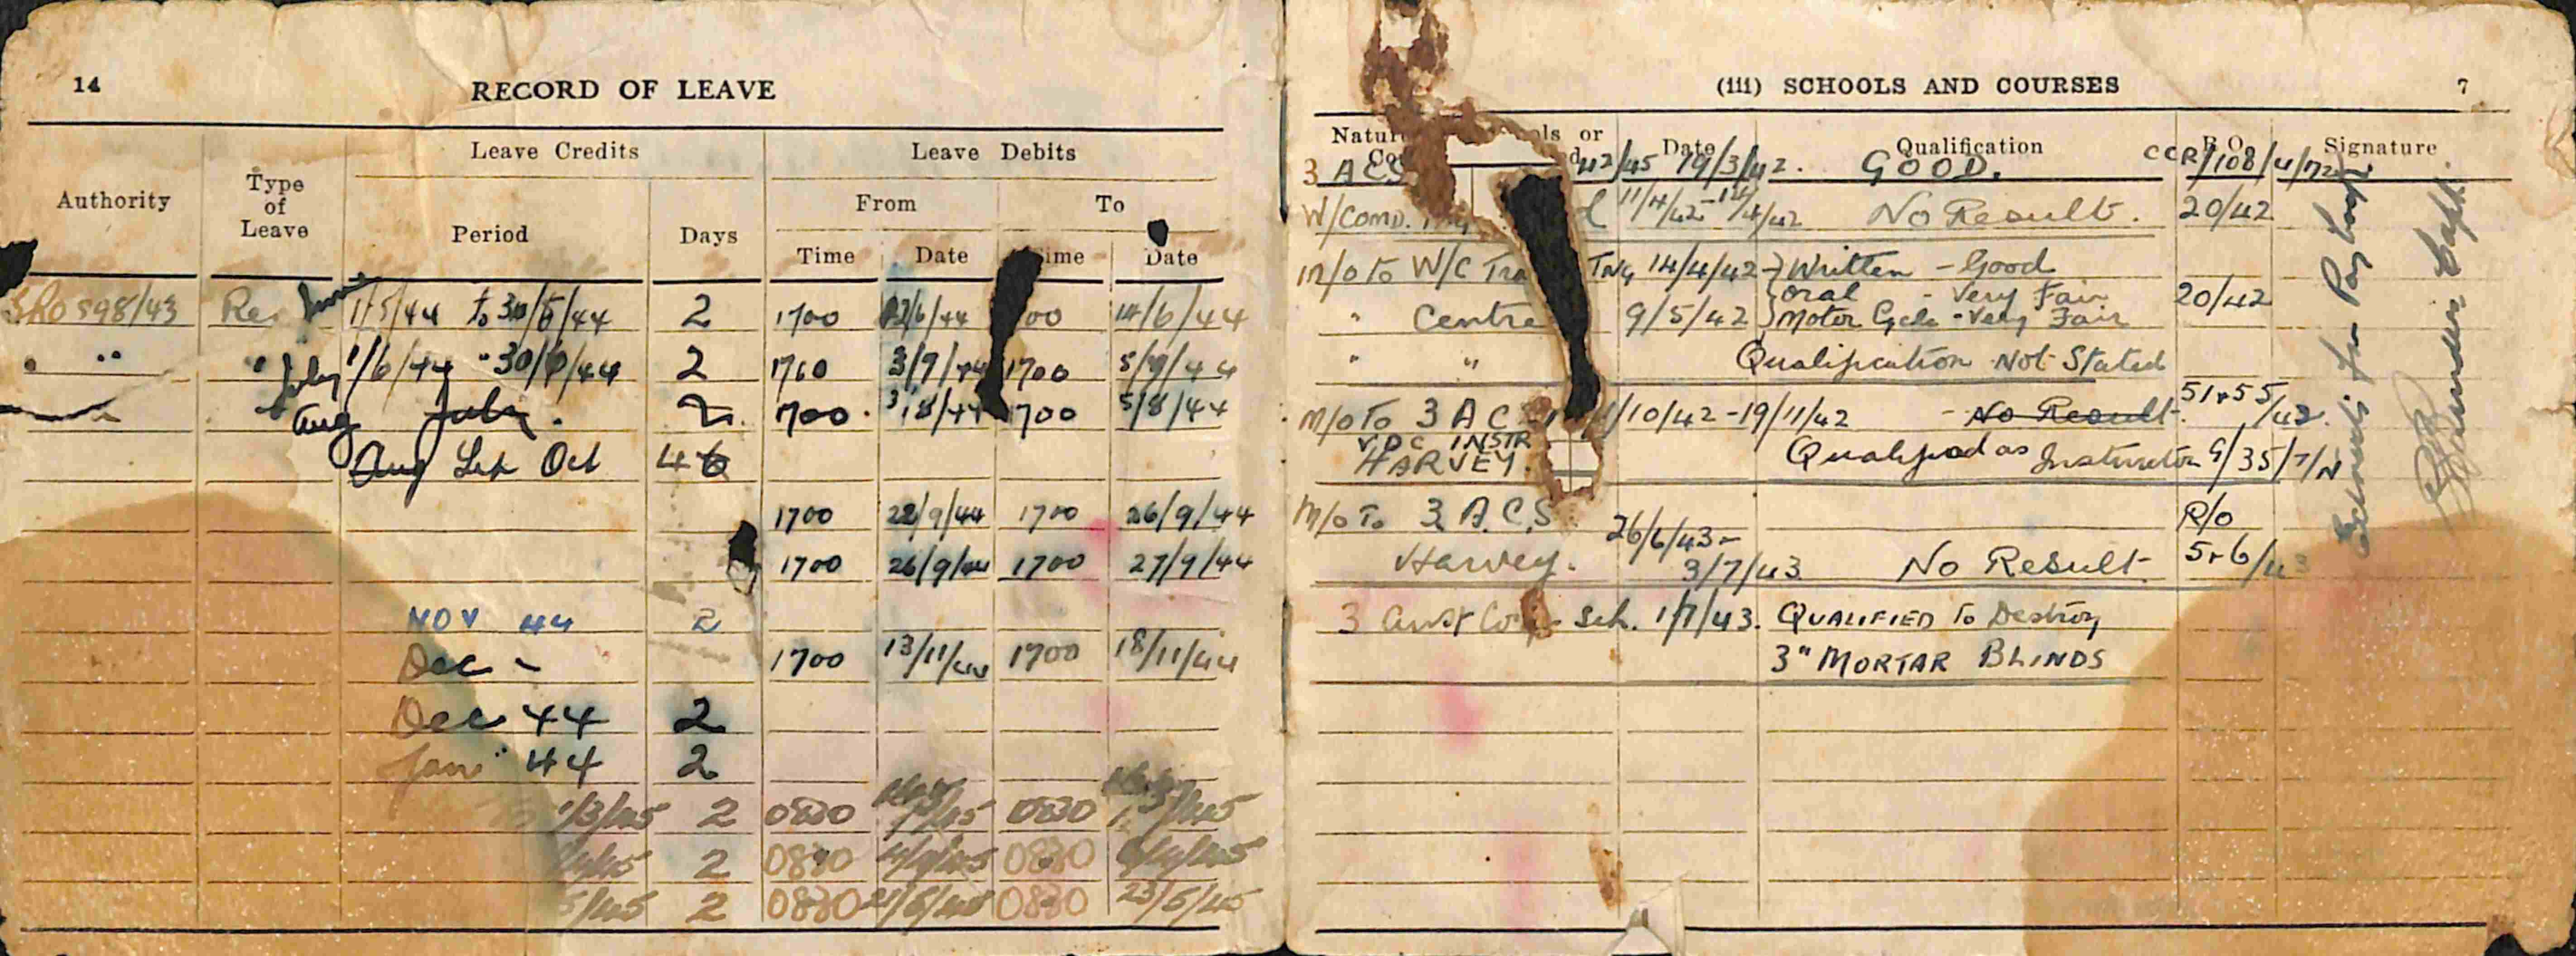 14
RECORD OF LEAVE
Authority
Type of Leave
Leave Credits
Leave Debits
Period
Days
From
To
Time
Date
Date
598/43 June 1/5/44 to 30/6/44 2 1700 /6/44 00 14/6/44
" " July 1/6/44 " 30/6/44 2 1700 3/7/44 1700 5/ /44
Aug July. 2 1700 3/8/44 1700 5/8/44
Aug Sep Oct 4 6
1700 22/9/44 1700 26/9/44
1700 26/9/44 1700 27/9/44
NOV 44 2
Dec - 1700 13/11/44 1700 18/11/44
Dec 44 2
Jan 44 2
1/3/45 2 0830 0830
/45 2 0830 0830
5/45 2 0830 21/5/45 0830 23/5/45
(iii) SCHOOLS AND COURSES
7
Date
Qualification
R.O.
Signature
3 ACS 42/45 19/3/42. GOOD. CCR/108/4/72
W/Comd. 11/4/42-14/4/42 No Result. 20/42
M/o to W/C Tra Tng 14/4/42- Written - Good
Oral - Very Fair 20/42
" Centre 9/5/42 Motor Cycle - Very Fair
" " Qualification Not Stated
M/o To 3 ACS /10/42 - 19/11/42 - No Result. 51+55/42.
VDC INSTR
HARVEY. Qualified as Instructor G/35/7/N
M/o To 3 A.C.S 26/6/43- R/o
Harvey. 3/7/43 No Result. 5+6/43
3 Aust Co Sch. 1/7/43. QUALIFIED To Destroy
3" MORTAR BLINDS
Pay book
Capt.